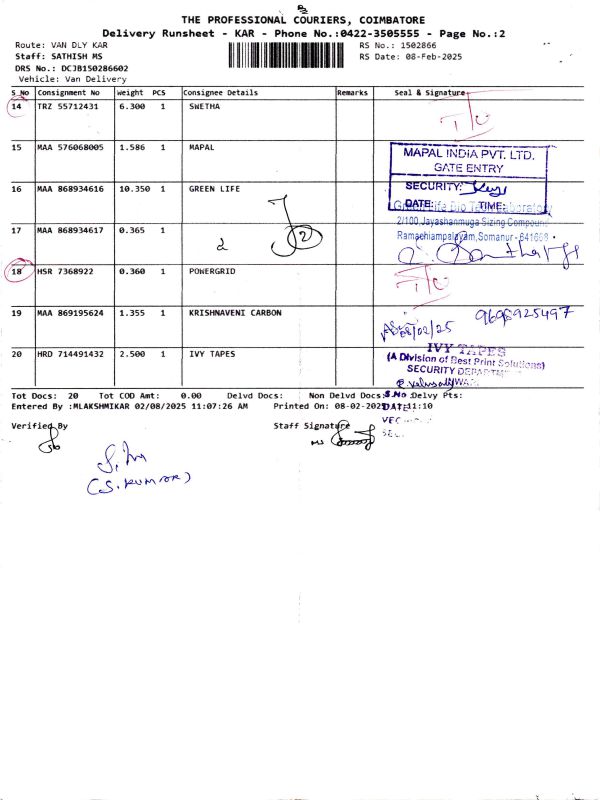 THE PROFESSIONAL COURIERS, COIMBATORE
Delivery Runsheet - KAR - Phone No.:0422-3505555 - Page No.:2
Route: VAN DLY KAR
RS No.: 1502866
Staff: SATHISH MS
RS Date: 08-Feb-2025
DRS No.: DCJB150286602
Vehicle: Van Delivery
S No Consignment No Weight PCS Consignee Details Remarks Seal & Signature
14 TRZ 55712431 6.300 1 SWETHA
15 MAA 576068005 1.586 1 MAPAL
MAPAL INDIA PVT. LTD.
GATE ENTRY
SECURITY:
DATE: TIME:
16 MAA 868934616 10.350 1 GREEN LIFE
Green Life Bio Tech Laboratory
2/100 Jayashanmuga Sizing Compound
Ramachiampalayam, Somanur - 641668
17 MAA 868934617 0.365 1
2
2
18 HSR 7368922 0.360 1 POWERGRID
19 MAA 869195624 1.355 1 KRISHNAVENI CARBON
08/02/25
9698925497
20 HRD 714491432 2.500 1 IVY TAPES
IVY TAPES
(A Division of Best Print Solutions)
SECURITY DEPARTM
Tot Docs: 20 Tot COD Amt: 0.00 Delvd Docs: Non Delvd Docs: Delvy Pts:
S.No
Entered By :MLAKSHMIKAR 02/08/2025 11:07:26 AM Printed On: 08-02-2025 11:11:10
DATE
Verified By Staff Signature
(S. KUMAR)